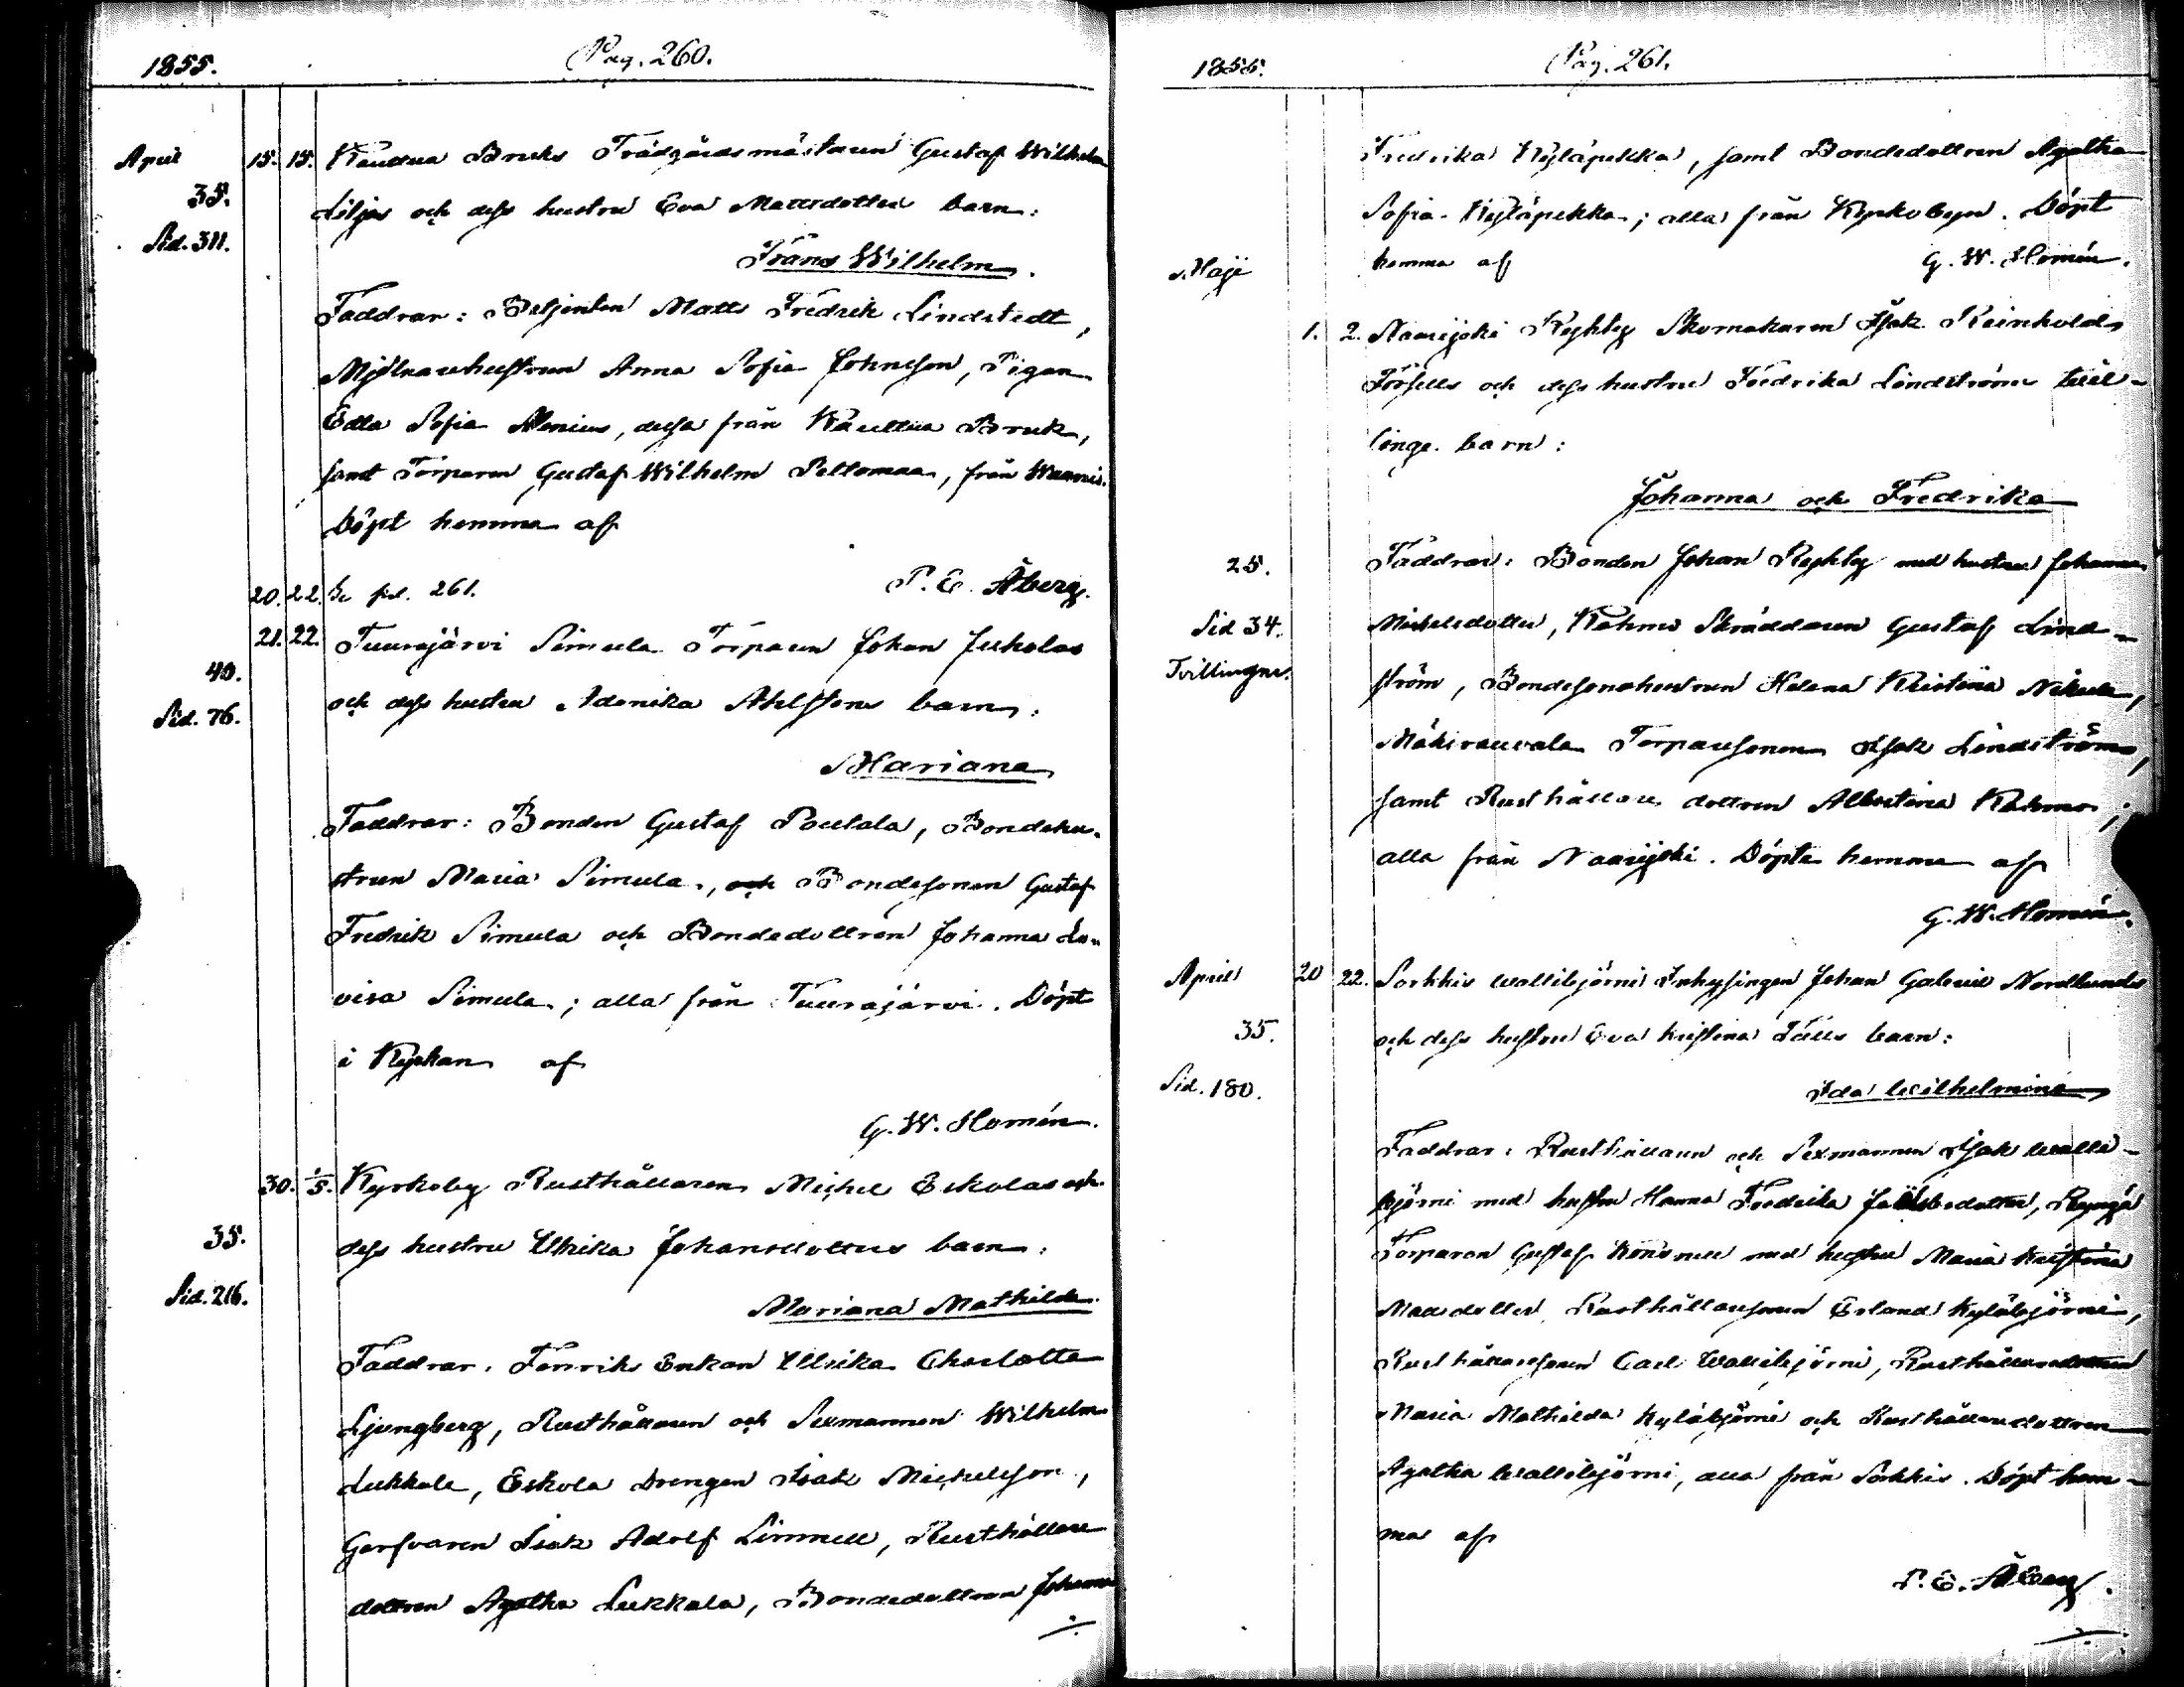 1855.
Pag. 260.
April 15. 15. Kauttua Bruks Trädgårdsmästaren Gustaf Wilhelm
35.
Liljas och dess hustru Eva Mattsdotters barn:
Sid. 311.
Frans Wilhelm.
Faddrar: Betjenten Matts Fredrik Lindstedt,
Mjölnarehustrun Anna Sofia Johnsson, Pigan
Edla Sofia Alenius, dessa från Kauttua Bruk,
samt Torparen Gustaf Wilhelm Peltomaa, från
Döpt hemma af
P. E. Åberg.
20. 22. Se pag. 261.
21. 22. Tuurajärvi Simula Torparen Johan Juholas
40.
och dess hustru Adamika Ahlstens barn:
Sid. 76.
Mariana
Faddrar: Bonden Gustaf Poutala, Bondehu-
strun Maria Simula, och Bondesonen Gustaf
Fredrik Simula och Bondedottren Johanna Lo-
visa Simula; alla från Tuurajärvi. Döpt
i Kyrkan af
G. W. Homén.
30. 1/5. Kyrkoby Rusthållaren Michel Eskolas och
35.
dess hustru Ulrika Johansdotters barn:
Sid. 216.
Mariana Mathilda.
Faddrar: Fenriks Enkan Ulrika Charlotta
Ljungberg, Rusthållaren och Sexmannen Wilhelm
Lukkala, Eskola Drengen Isak Michelsson,
Garfvaren Isak Adolf Linnell, Rusthållare
dottren Agatha Lukkala, Bondedottren Johanna
1855.
Pag. 261.
Fredrika Kyläpekka, samt Bondedottren Agatha
Sofia Kyläpekka; alla från Kyrkobyn. Döpt
hemma af G. W. Homén.
Maji
1. 2. Naarijoki Ryhky Skomakaren Isak Reinholds
Forsells och dess hustru Fredrika Lindströms tvil-
linge barn:
Johanna och Fredrika
25.
Faddrar: Bonden Johan Ryhky med hustru Johanna
Sid 34.
Michelsdotter, Rahmo Skräddaren Gustaf Lind-
Tvillingar.
ström, Bondesonshustrun Helena Kristina Nikula,
Mäkirauvala Torparesonen Isak Lindström,
samt Rusthållare dottren Albertina Rahmo;
alla från Naarijoki. Döpta hemma af
G. W. Homén.
April 20 22. Sorkkis Wallibjörni Inhysingen Johan Gabriel Nordlunds
35.
och dess hustru Eva Kristina barn:
Sid. 180.
Ida Wilhelmina
Faddrar: Rusthållaren och Sexmannen Isak Walli-
björni med hustru Hanna Fredrika
Torparen Gustaf med hustru Maria Kristina
Madsdotter, Rusthållaresonen Erland Kyläbjörni,
Rusthållaresonen Carl Wallibjörni, Rusthållaredottren
Maria Mathilda Kyläbjörni och Rusthållaredottren
Agatha Wallibjörni, alla från Sorkkis. Döpt hem-
ma af
P. E. Åberg.